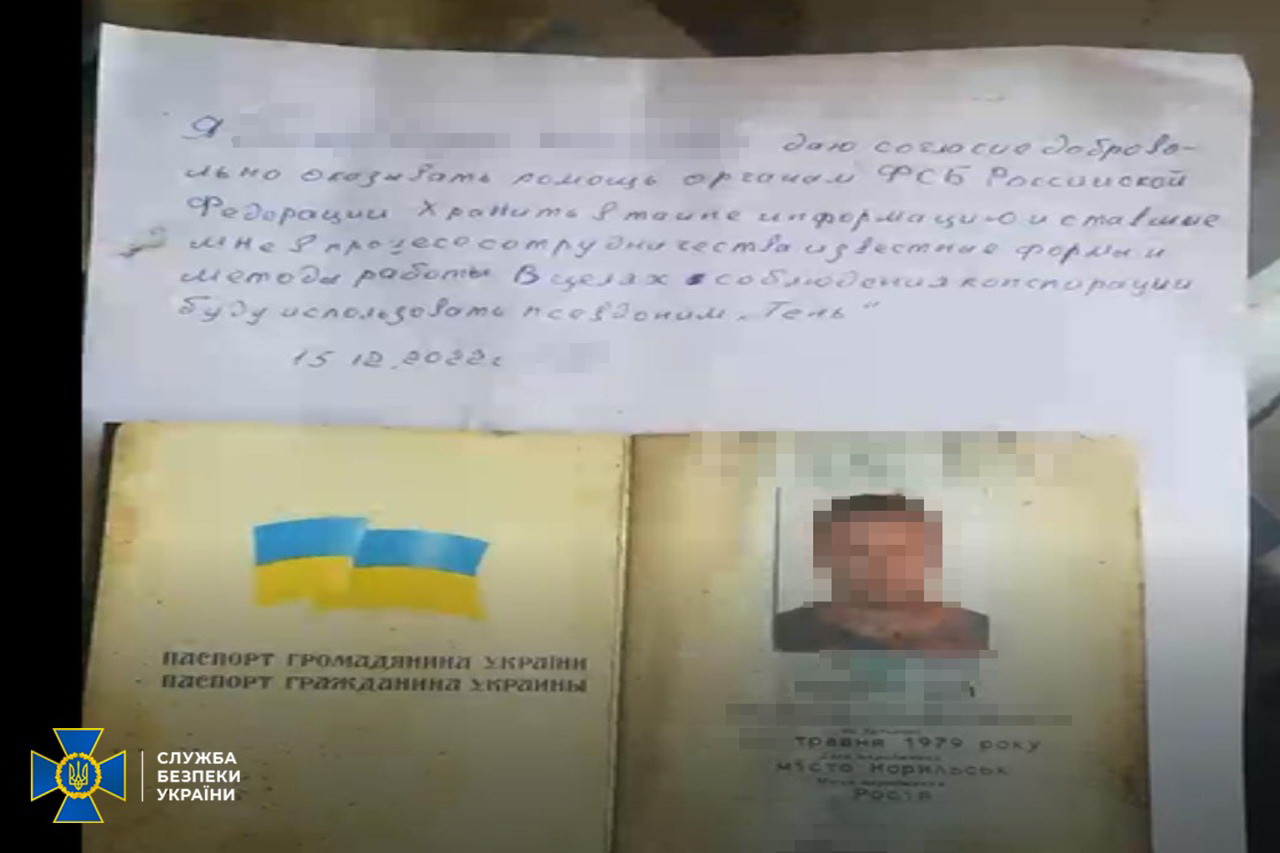 Я даю согласие доброво-
льно оказывать помощь органам ФСБ Российской
Федерации Хранить в тайне информацию и ставшие
мне в процесе сотрудничества известные формы и
методы работы В целях соблюдения конспирации
буду использовать псевдоним „Тень“
15 12.2022г
ПАСПОРТ ГРОМАДЯНИНА УКРАЇНИ
ПАСПОРТ ГРАЖДАНИНА УКРАИНЫ
травня 1979 року
місто Норильськ
Росія
СЛУЖБА
БЕЗПЕКИ
УКРАЇНИ